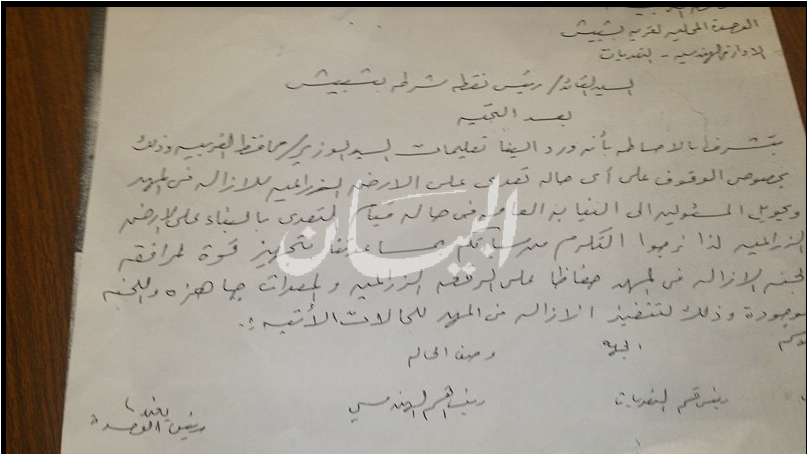 الوحدة المحلية لقرية بشبيش
الادارة الهندسية - التعديات
السيد القائد/ رئيس نقطه شرطه بشبيش
بعد التحيه
نتشرف بالاحاطه بأنه ورد الينا تعليمات السيد الوزير/ محافظ الغربيه وذلك
بخصوص الوقوف على أى حاله تعدى على الارض الزراعيه للازاله فى المهد
وتحويل المسئولين الى النيابه العامه فى حاله التعدى بالبناء على الارض
الزراعيه لذا نرجوا التكرم من سيادتكم بمساعدتنا بتجهيز قوة لمرافقه
لجنه الازاله فى المهد حفاظا على الرقعه الزراعيه والمعدات جاهزه واللجنه
موجودة وذلك لتنفيذ الازاله من المهد للحالات الأتيه :.
الجهة وصف الحاله
رئيس قسم التعديات رئيس القسم الهندسى يعتمد،
رئيس الوحدة
البيان